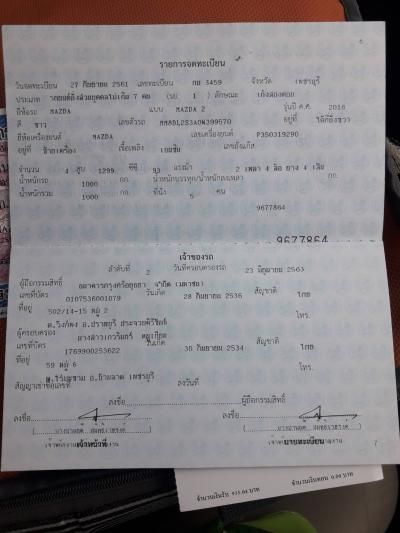 6
รายการจดทะเบียน
วันจดทะเบียน 27 กันยายน 2561 เลขทะเบียน กย 3459 จังหวัด เพชรบุรี
ประเภท รถยนต์นั่งส่วนบุคคลไม่เกิน 7 คน (รย. 1) ลักษณะ เก๋งสองตอน
ยี่ห้อรถ MAZDA แบบ MAZDA 2 รุ่นปี ค.ศ. 2018
สี ขาว เลขตัวรถ อยู่ที่
ยี่ห้อเครื่องยนต์ MAZDA เลขเครื่องยนต์ P350319290
อยู่ที่ เชื้อเพลิง เบนซิน เลขถังแก๊ส
จำนวน 4 สูบ 1299 ซีซี 93 แรงม้า 2 เพลา 4 ล้อ ยาง 4 เส้น
น้ำหนักรถ 1000 กก. น้ำหนักบรรทุก/น้ำหนักลงเพลา กก.
น้ำหนักรวม 1000 กก. ที่นั่ง 5 คน
9677864
9677864
เจ้าของรถ
ลำดับที่ 2 วันที่ครอบครองรถ 23 มิถุนายน 2563
ผู้ถือกรรมสิทธิ์ ธนาคารกรุงศรีอยุธยา จำกัด (มหาชน)
เลขที่บัตร 0107536001079 วันเกิด 28 กันยายน 2536 สัญชาติ ไทย
ที่อยู่ 502/14-15 หมู่ 2 โทร.
อ.ปราณบุรี ประจวบคีรีขันธ์
ผู้ครอบครอง
เลขที่บัตร 1769900253622 วันเกิด 30 กันยายน 2534 สัญชาติ ไทย
ที่อยู่ 59 หมู่ 6 โทร.
อ.บ้านลาด เพชรบุรี
สัญญาเช่าซื้อเลขที่ ลงวันที่
ลงชื่อ ผู้ถือกรรมสิทธิ์
ลงชื่อ ลงชื่อ
เจ้าหน้าที่ นายทะเบียน
7
จำนวนเงินรับ บาท จำนวนเงินทอน 0.00 บาท